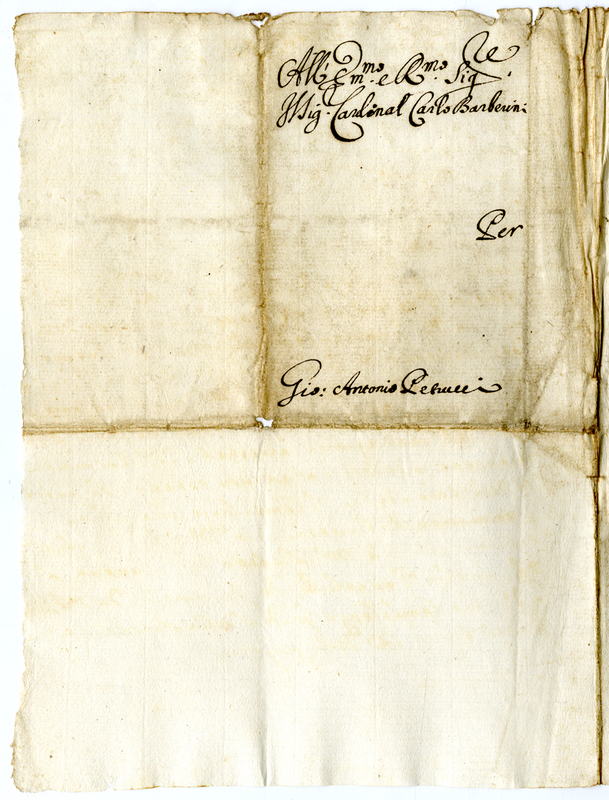 All' Em.mo e R.mo Sig.re
Il Sig. Cardinal Carlo Barberini
Per
Gio: Antonio Petrucci